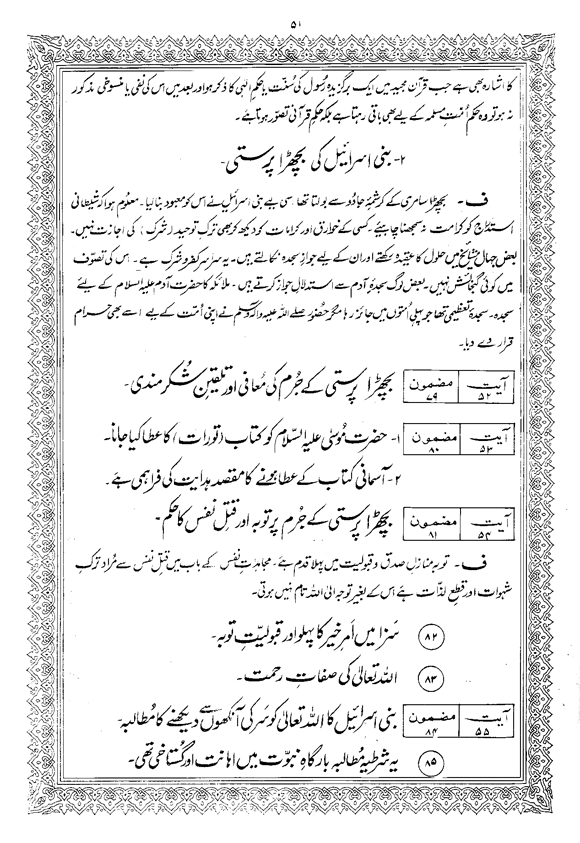 ۵۱
کا اشارہ بھی ہے جب قرآن مجید میں ایک برگزیدہ رسول کی سُنّت یا حکمِ الٰہی کا ذکر ہو اور بعد میں اس کی نفی یا منسوخی مذکور
نہ ہو تو وہ حکم اُمّتِ مسلمہ کے لیے بھی باقی رہتا ہے بلکہ حکمِ قرآنی تصوّر ہوتا ہے۔
۲- بنی اسرائیل کی بچھڑا پرستی۔
ف۔ بچھڑا سامری کے کرشمۂ جادو سے بولتا تھا اسی لیے بنی اسرائیل نے اس کو معبود بنا لیا۔ معلوم ہوا کہ شیطانی
استدراج کو کرامت نہ سمجھنا چاہیئے۔ کسی کے خوارق اور کرامات کو دیکھ کر بھی ترکِ توحید (شرک) کی اجازت نہیں۔
بعض جہال مشائخ میں حلول کا عقیدہ رکھتے اور ان کے لیے جوازِ سجدہ نکالتے ہیں۔ یہ سراسر کفر و شرک ہے۔ اس کی تصوّف
میں کوئی گنجائش نہیں۔ بعض لوگ سجدۂ آدم سے استدلالِ جواز کرتے ہیں۔ ملائکہ کا حضرت آدم علیہ السلام کے لیے
سجدہ۔ سجدۂ تعظیمی تھا جو پہلی اُمتوں میں جائز رہا مگر حضور صلے اللہ علیہ وآلہ وسلم نے اپنی اُمت کے لیے اسے بھی حرام
قرار دے دیا۔
آیت ۵۲ مضمون ۷۹ بچھڑا پرستی کے جُرم کی مُعافی اور تلقینِ شُکر مندی۔
آیت ۵۳ مضمون ۸۰ ۱- حضرت مُوسیٰ علیہ السّلام کو کتاب (تورات) کا عطا کیا جانا۔
۲- آسمانی کتاب کے عطا ہونے کا مقصد ہدایت کی فراہمی ہے۔
آیت ۵۴ مضمون ۸۱ بچھڑا پرستی کے جُرم پر توبہ اور قتلِ نفس کا حکم۔
ف۔ توبہ منازلِ صدق و قبولیت میں پہلا قدم ہے۔ مجاہدتِ نفس کے باب میں قتلِ نفس سے مُراد ترکِ
شہوات اور قطعِ لذّات ہے اس کے بغیر توجہ الی اللہ تام نہیں ہوتی۔
۸۲ سَزا میں اَمرِ خیر کا پہلو اور قبولیّتِ توبہ۔
۸۳ اللہ تعالیٰ کی صفاتِ رحمت۔
آیت ۵۵ مضمون ۸۴ بنی اسرائیل کا اللہ تعالیٰ کو سَر کی آنکھوں سے دیکھنے کا مُطالبہ۔
۸۵ یہ شرطیہ مُطالبہ بارگاہِ نبوّت میں اہانت اور گُستاخی تھی۔